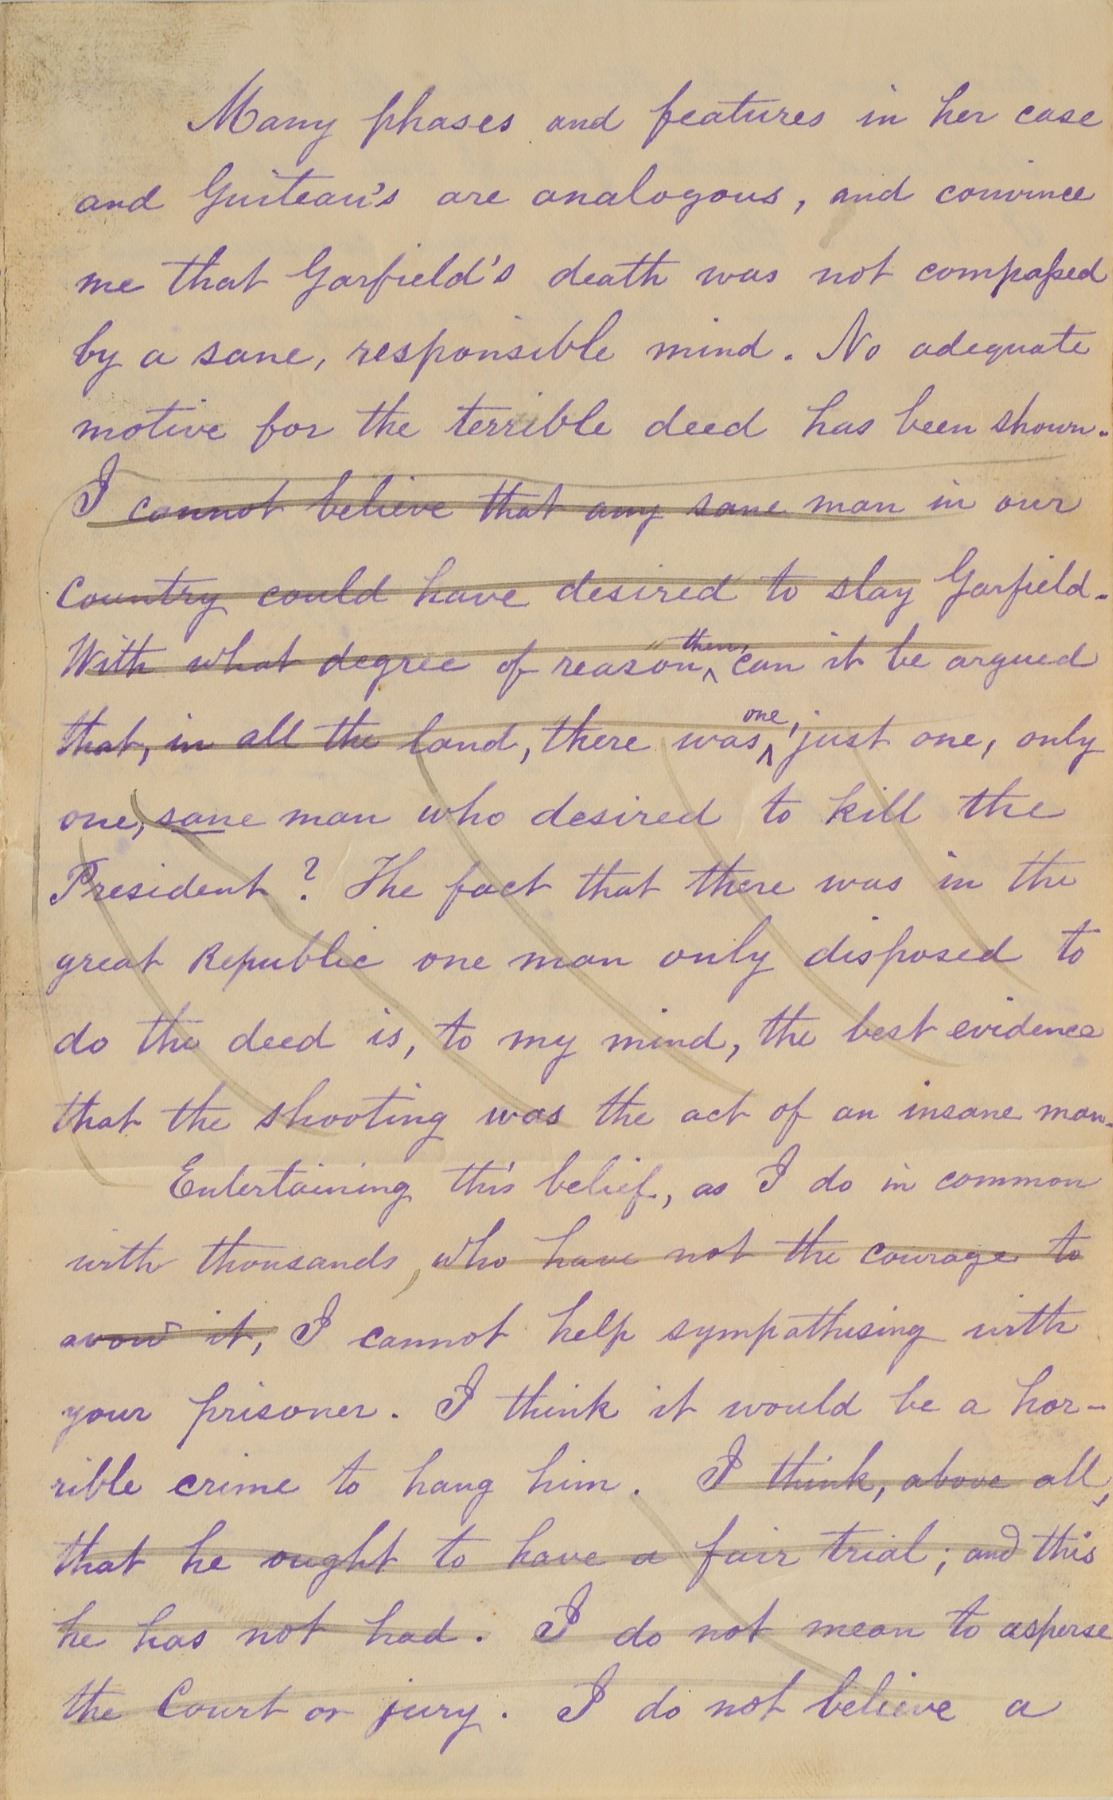 Many phases and features in her case
and Guiteau's are analogous, and convince
me that Garfield's death was not compassed
by a sane, responsible mind. No adequate
motive for the terrible deed has been shown.
I cannot believe that any sane man in our
Country could have desired to slay Garfield.
With what degree of reason, then, can it be argued
that, in all the land, there was one, just one, only
one, sane man who desired to kill the
President? The fact that there was in the
great Republic one man only disposed to
do the deed is, to my mind, the best evidence
that the shooting was the act of an insane man.
Entertaining this belief, as I do in common
with thousands, who have not the courage to
avow it, I cannot help sympathising with
your prisoner. I think it would be a hor-
rible crime to hang him. I think, above all,
that he ought to have a fair trial; and this
he has not had. I do not mean to asperse
the Court or jury. I do not believe a